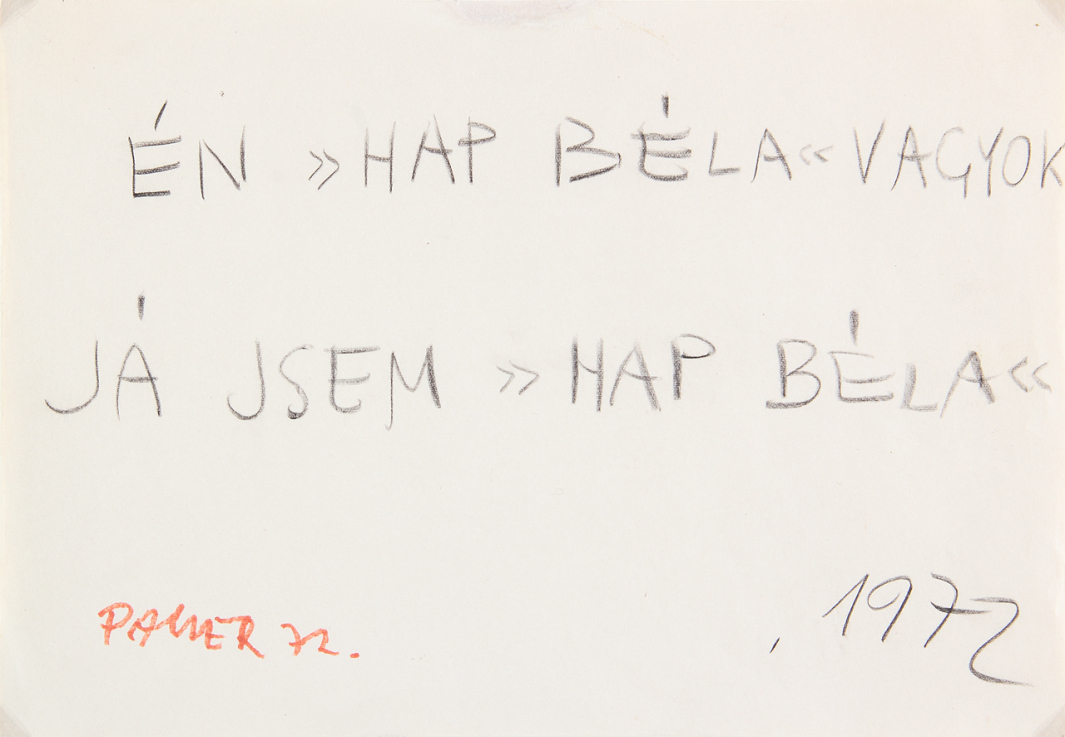 ÉN »HAP BÉLA« VAGYOK
JÁ JSEM »HAP BÉLA«
PAUER 72.
, 1972